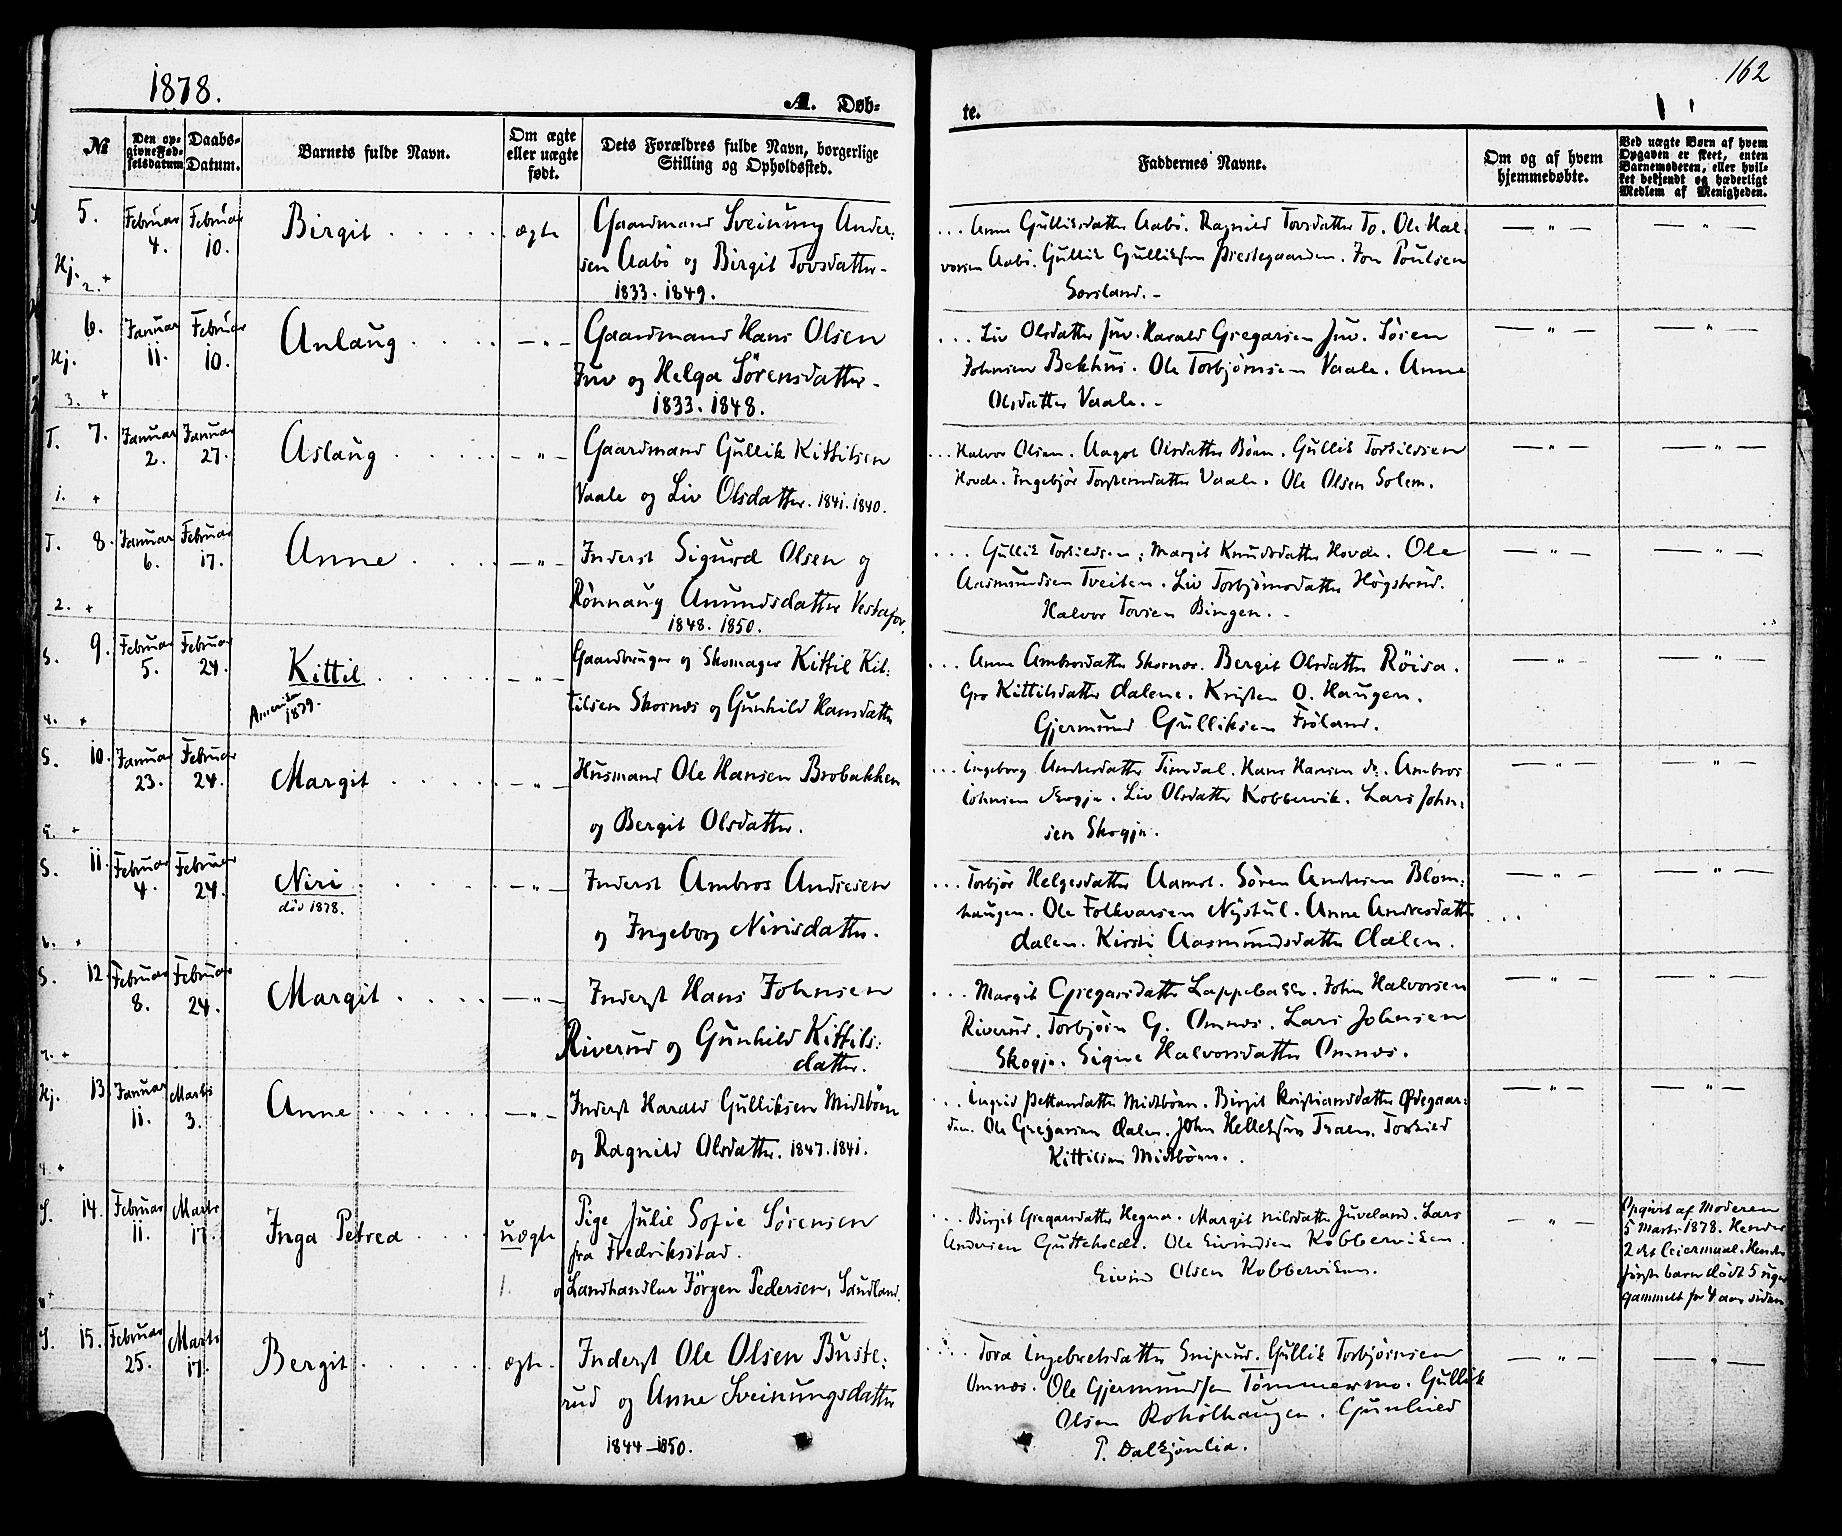 1878.
A. Døb-
te.
162
No
Den op-
givne Fød-
selsdatum
Daabs-
Datum.
Barnets fulde Navn.
Om ægte
eller uægte
født.
Dets Forældres fulde Navn, borgerlige
Stilling og Opholdssted.
Faddernes Navne.
Om og af hvem
hjemmedøbte.
Ved uægte Børn af hvem
Opgaven er skeet, enten
Barnemoderen, eller hvil-
ket bekjendt og hæderligt
Medlem af Menigheden.
5. Februar 4. Februar 10. Birgit ægte Gaardmand Sveinung Ander-
sen Aabö og Birgit Tovsdatter.
1833. 1849.
Hj. 2. +
Anne Gulliksdatter Aabö. Ragnild Tovsdatter To. Ole Hal-
vorsen Aabö. Gullik Gulliksen Præstegaarden. Jon Poulsen
Sorsland.
— " — — " —
6. Januar 11. Februar 10. Anlaug — " — Gaardmand Hans Olsen
Juv og Helga Sörensdatter.
1833. 1848.
Hj. 3. +
Liv Olsdatter Juv. Harald Gregarsen Juv. Sören
Johnsen Bekhus. Ole Torbjørnsen Vaale. Anne
Olsdatter Vaale.
— " — — " —
T. 7. Januar 2. Januar 27. Aslaug — " — Gaardmand Gullik Kittilsen
Vaale og Liv Olsdatter. 1841. 1840.
1. +
Halvor Olsen. Aagot Olsdatter Böen. Gullik Torkildsen
Hovde. Ingebjör Torsteinsdatter Vaale. Ole Olsen Solem.
— " — — " —
T. 8. Januar 6. Februar 17. Anne — " — Inderst Sigurd Olsen og
Rönnaug Amundsdatter
1848. 1850.
2. +
Gullik Torkildsen, Margit Knudsdatter Hovde. Ole
Aasmundsen Tveiten. Liv Torbjörnsdatter Högstrud.
Halvor Tovsen Bingen.
— " — — " —
S. 9. Februar 5. Februar 24. Kittil — " — Gaardbruger og Skomager Kittil Kit-
tilsen Skornes og Gunhild Hansdatter
Amerika
1879.
4. +
Anne Ambrosdatter Skornes. Bergit Olsdatter Röisa.
Gro Kittilsdatter Dalene. Kristen O. Haugen.
Gjermund Gulliksen Fröland.
— " — — " —
S. 10. Januar 23. Februar 24. Margit — " — Husmand Ole Hansen Brobakken
og Bergit Olsdatter.
5. +
Ingeborg Andersdatter Timdal. Hans Hansen do. Ambros
Johnsen Skogje. Liv Olsdatter Kobbervik. Lars John-
sen Skogje.
— " — — " —
S. 11. Februar 4. Februar 24. Niri — " — Inderst Ambros Andresen
død 1878. og Ingeborg Nirisdatter.
6. +
Torbjör Helgesdatter Aamot. Sören Andresen Blom-
haugen. Ole Folkvarsen Nystul. Anne Andresdatter
Dalen. Kirsti Aasmundsdatter Dalen.
— " — — " —
S. 12 Februar 8. Februar 24. Margit — " — Inderst Hans Johnsen
Riverud og Gunhild Kittils-
datter.
7. +
Margit Gregarsdatter Lappebakk. John Halvorsen
Riverud. Torbjörn G. Omnes. Lars Johnsen
Skogje. Signe Halvorsdatter Omnes.
— " — — " —
Hj. 13. Januar 11. Marts 3. Anne — " — Inderst Harald Gulliksen Midtböen
og Ragnild Olsdatter. 1847. 1841.
4. +
Ingrid Pettersdatter Midtböen. Birgit Kristiansdatter Ødegaar-
den. Ole Gregarsen Dalen. John Helleksen Traen. Torkild
Kittilsen Midtböen.
— " — — " —
S. 14. Februar 11. Marts 17. Inga Petrea uægte Pige Julie Sofie Sörensen
fra Fredriksstad.
1. og Landhandler Jörgen Pedersen, Sauland.
8 +
Birgit Gregarsdatter Hegna. Margit Nilsdatter Juveland. Lars
Andersen Gutteholdt. Ole Eivindsen Kobberviken.
Eivind Olsen Kobberviken.
— " —
Opgivet af Moderen
5 Marts 1878. Hendes
2det Leiermaal. Hendes
første barn dödt 5 uger
gammelt for 4 aar siden
S. 15. Februar 25. Marts 17. Bergit ægte Inderst Ole Olsen Buste-
rud og Anne Sveinungsdatter
1844–1850.
Tora Ingebretsdatter Sniprud. Gullik Torbjörnsen
Omnes. Ole Gjermundsen Tömmermo. Gullik
Olsen Roholthaugen. Gunhild
P. Dalsjönlia.
— " — — " —